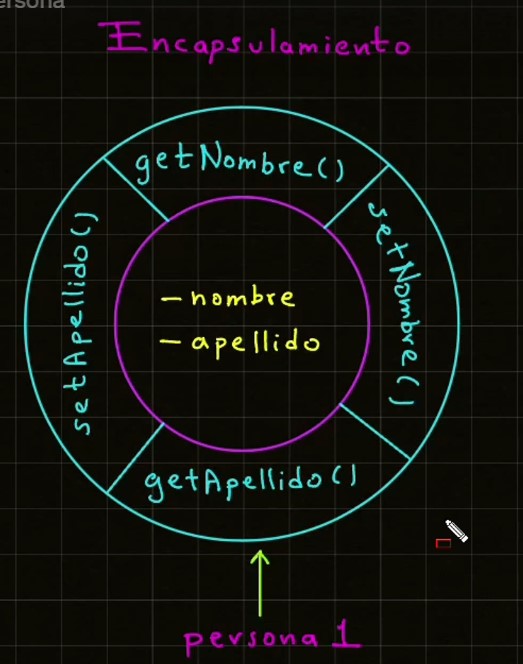 ersona
Encapsulamiento
getNombre()
setNombre()
setApellido()
- nombre
- apellido
getApellido()
persona 1